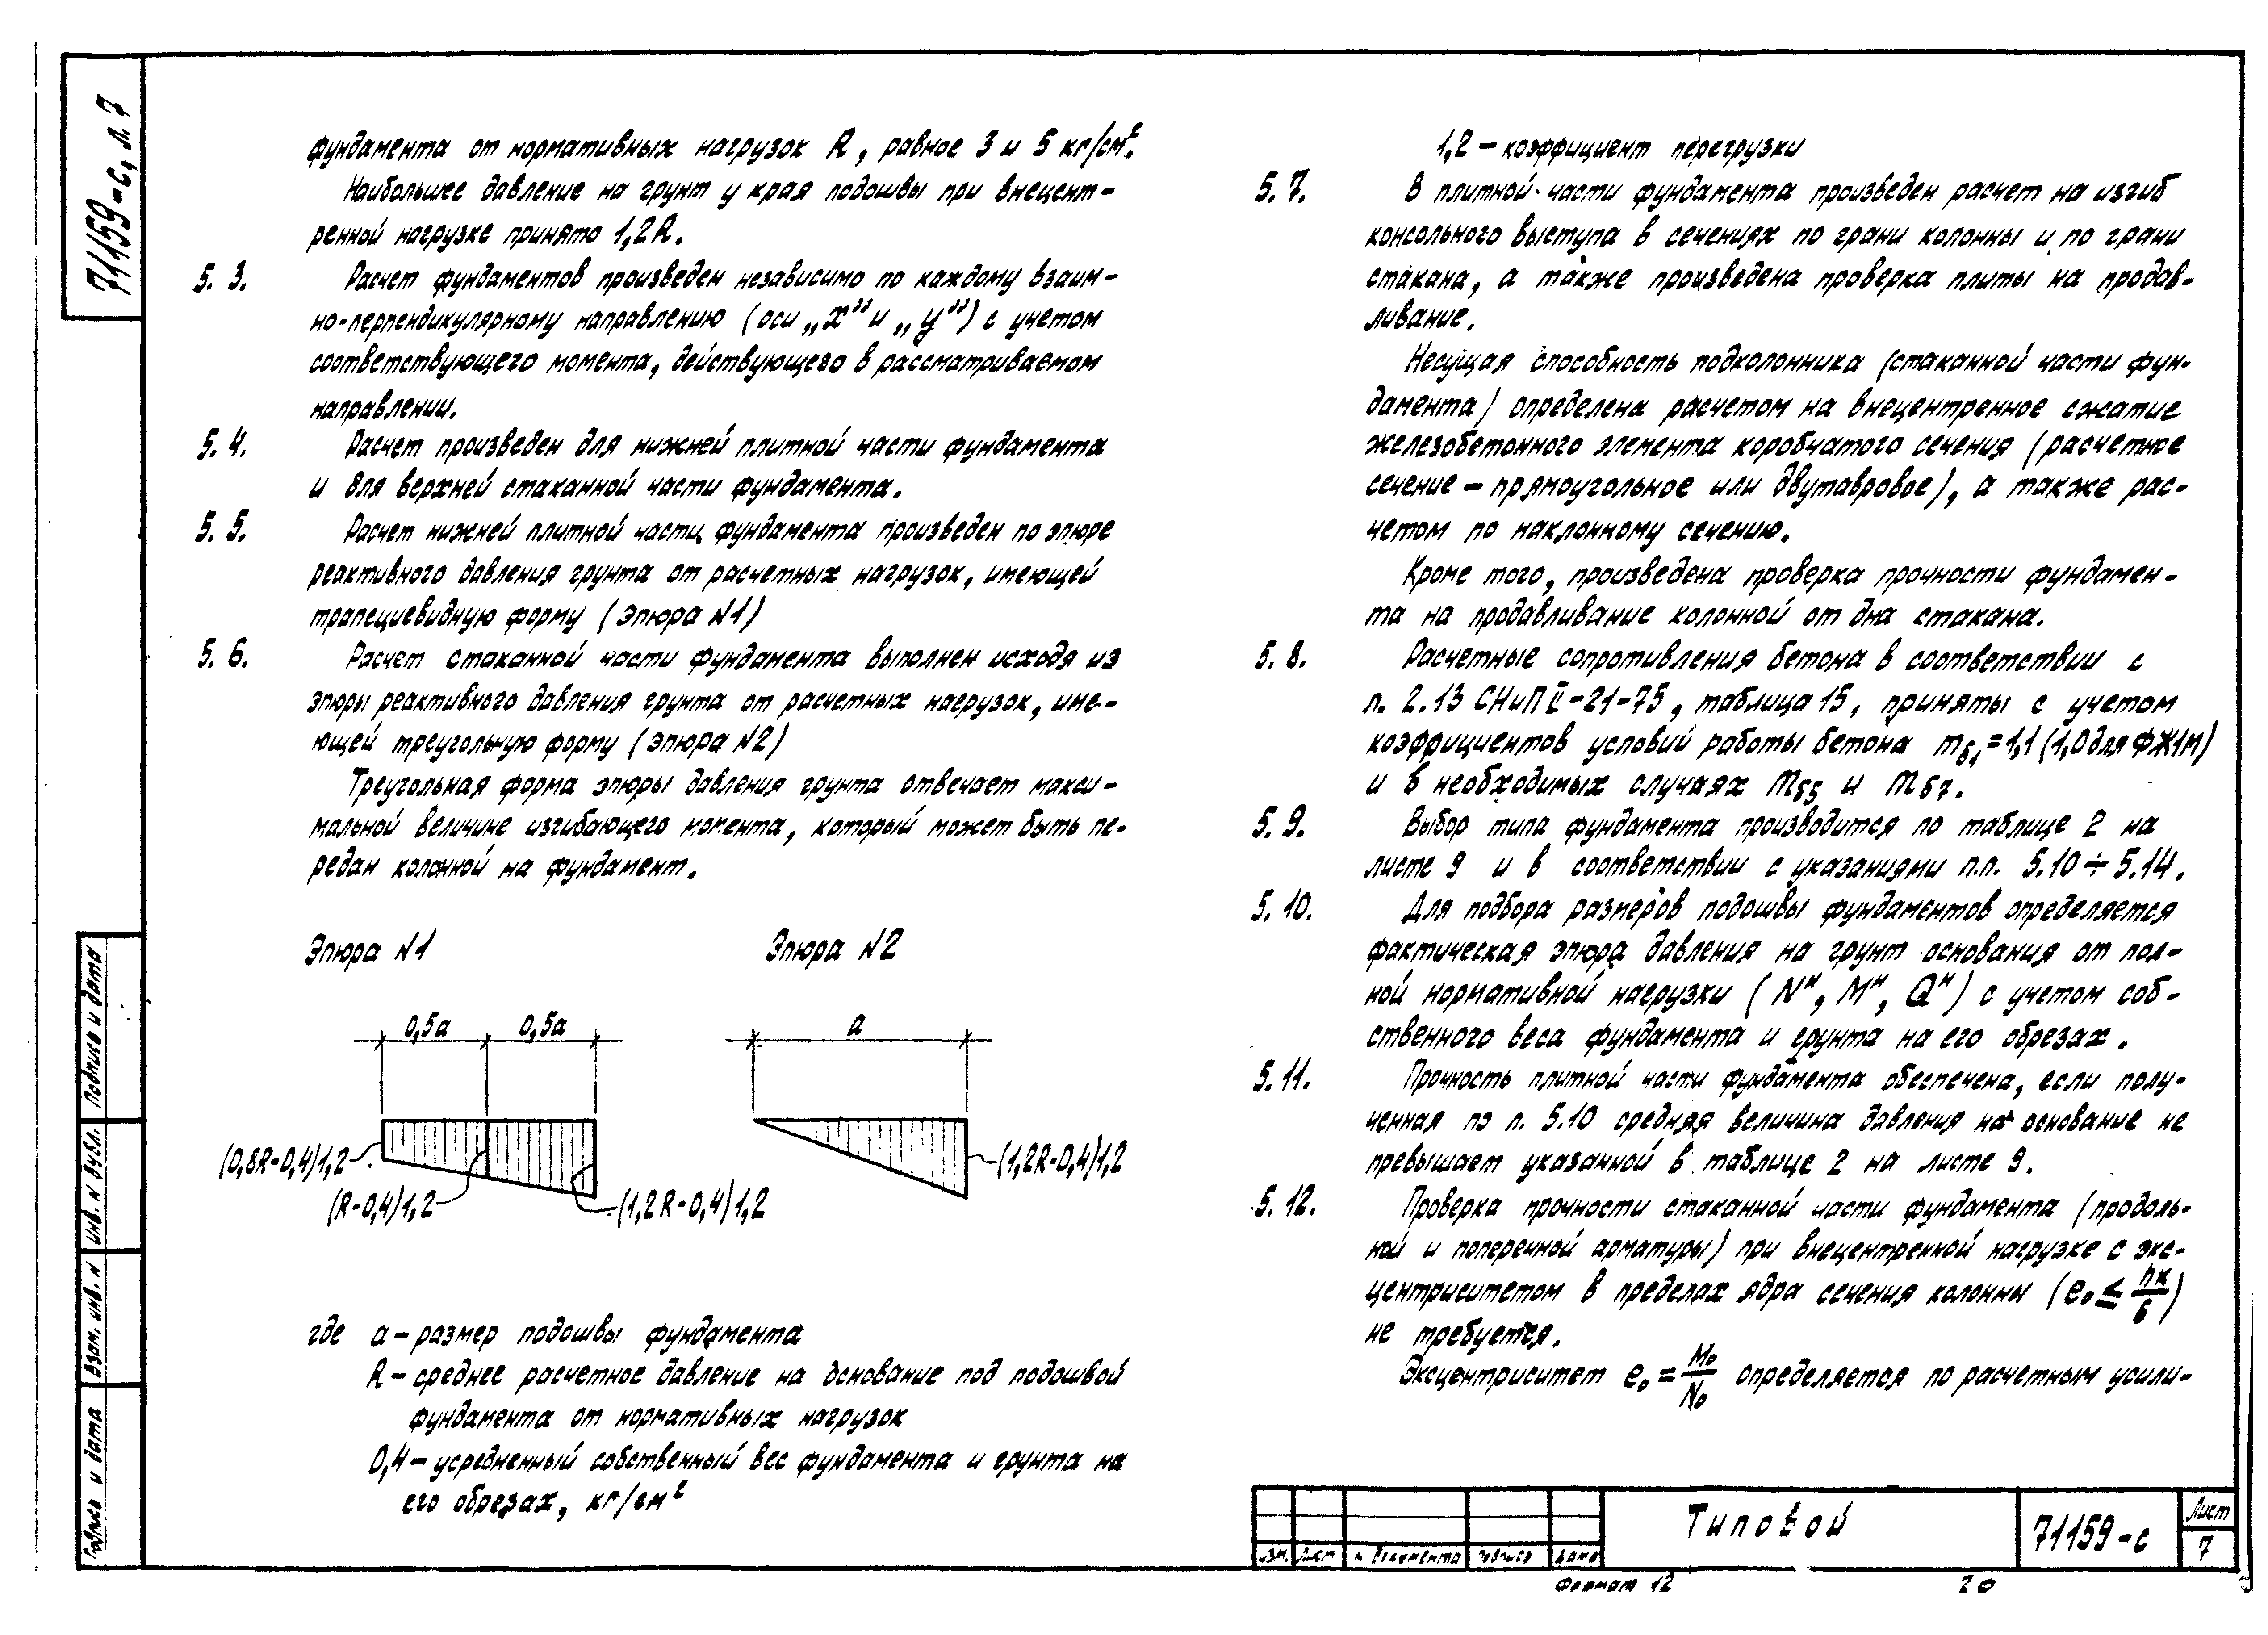 71159-с, л. 7
фундамента от нормативных нагрузок R, равное 3 и 5 кг/см².
Наибольшее давление на грунт у края подошвы при внецент-
ренной нагрузке принято 1,2R.
5.3. Расчет фундаментов произведен независимо по каждому взаим-
но-перпендикулярному направлению (оси „х" и „у") с учетом
соответствующего момента, действующего в рассматриваемом
направлении.
5.4. Расчет произведен для нижней плитной части фундамента
и для верхней стаканной части фундамента.
5.5. Расчет нижней плитной части фундамента произведен по эпюре
реактивного давления грунта от расчетных нагрузок, имеющей
трапециевидную форму (эпюра N1)
5.6. Расчет стаканной части фундамента выполнен исходя из
эпюры реактивного давления грунта от расчетных нагрузок, име-
ющей треугольную форму (эпюра N2)
Треугольная форма эпюры давления грунта отвечает макси-
мальной величине изгибающего момента, который может быть пе-
редан колонной на фундамент.
Эпюра N1
Эпюра N2
0,5а 0,5а
а
(0,8R-0,4)1,2
(R-0,4)1,2
(1,2R-0,4)1,2
(1,2R-0,4)1,2
где а – размер подошвы фундамента
R – среднее расчетное давление на основание под подошвой
фундамента от нормативных нагрузок
0,4 – усредненный собственный вес фундамента и грунта на
его обрезах, кг/см²
1,2 – коэффициент перегрузки
5.7. В плитной части фундамента произведен расчет на изгиб
консольного выступа в сечениях по грани колонны и по грани
стакана, а также произведена проверка плиты на продав-
ливание.
Несущая способность подколонника (стаканной части фун-
дамента) определена расчетом на внецентренное сжатие
железобетонного элемента коробчатого сечения (расчетное
сечение – прямоугольное или двутавровое), а также рас-
четом по наклонному сечению.
Кроме того, произведена проверка прочности фундамен-
та на продавливание колонной от дна стакана.
5.8. Расчетные сопротивления бетона в соответствии с
п. 2.13 СНиП II-21-75, таблица 15, приняты с учетом
коэффициентов условий работы бетона mб₁=1,1 (1,0 для ФЖ1М)
и в необходимых случаях mб5 и mб7.
5.9. Выбор типа фундамента производится по таблице 2 на
листе 9 и в соответствии с указаниями п.п. 5.10÷5.14.
5.10. Для подбора размеров подошвы фундаментов определяется
фактическая эпюра давления на грунт основания от пол-
ной нормативной нагрузки (Nн, Mн, Qн) с учетом соб-
ственного веса фундамента и грунта на его обрезах.
5.11. Прочность плитной части фундамента обеспечена, если полу-
ченная по п. 5.10 средняя величина давления на основание не
превышает указанной в таблице 2 на листе 9.
5.12. Проверка прочности стаканной части фундамента (продоль-
ной и поперечной арматуры) при внецентренной нагрузке с экс-
центриситетом в пределах ядра сечения колонны (e₀ ≤ hк/6)
не требуется.
Эксцентриситет e₀ = M₀/N₀ определяется по расчетным усили-
Подпись и дата
Инв. N дубл.
Взам. инв. N
Подпись и дата
Изм. Лист N документа Подпись Дата
Типовой
71159-с
Лист
7
Формат 12
20